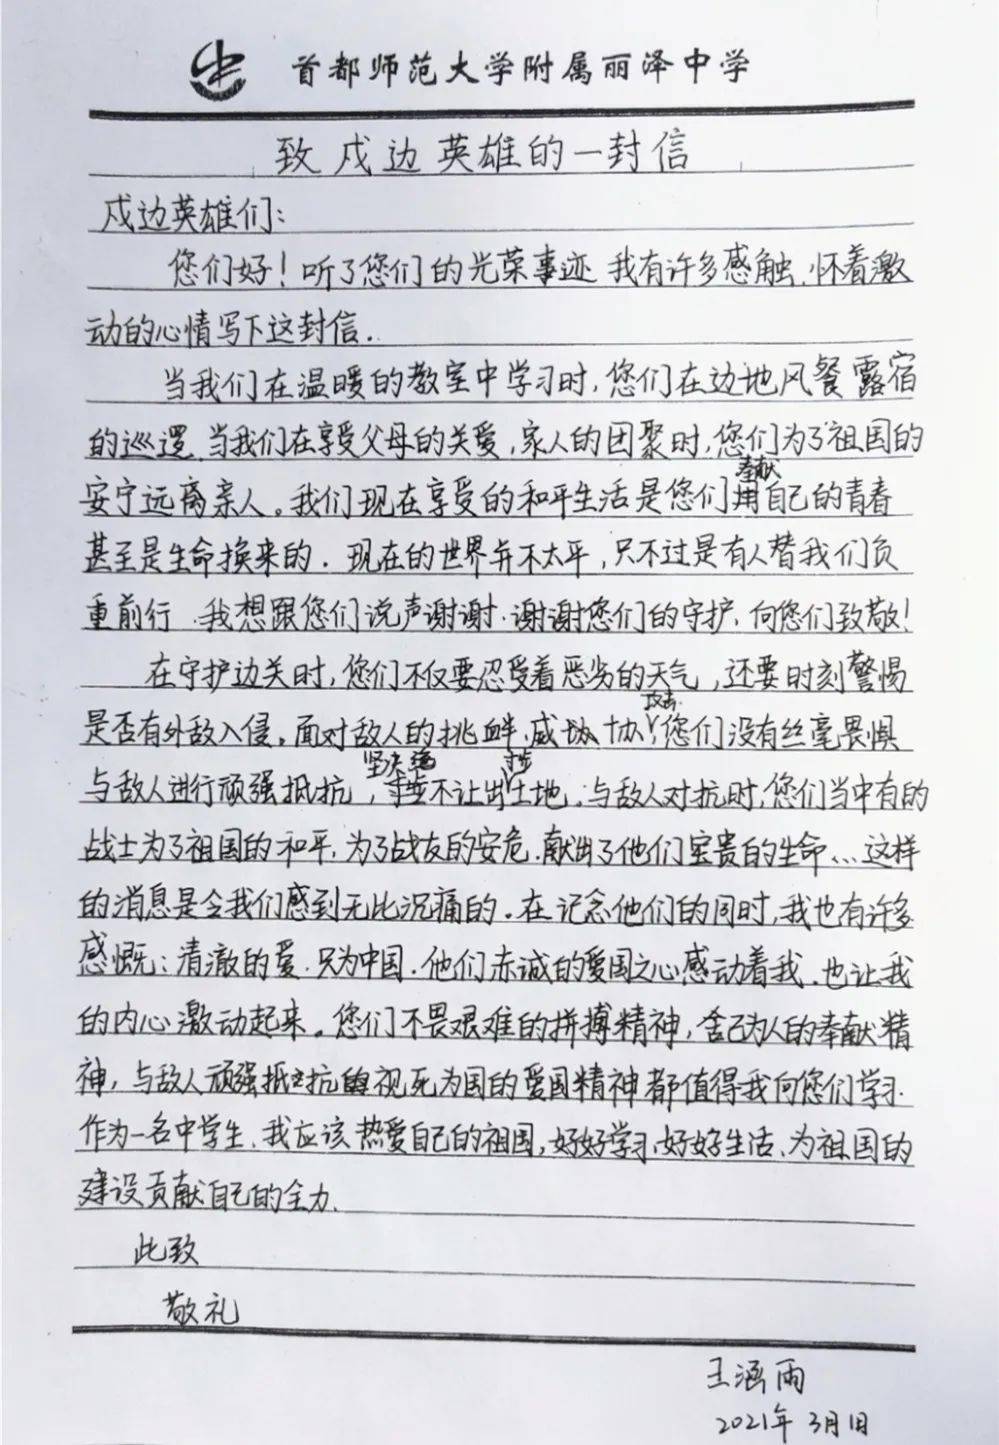 首都师范大学附属丽泽中学
致戍边英雄的一封信
戍边英雄们：
您们好！听了您们的光荣事迹 我有许多感触，怀着激
动的心情写下这封信．
当我们在温暖的教室中学习时，您们在边地风餐露宿
的巡逻 当我们在享受父母的关爱，家人的团聚时，您们为了祖国的
奉献
安宁远离亲人。我们现在享受的和平生活是您们用自己的青春
甚至是生命换来的．现在的世界并不太平，只不过是有人替我们负
重前行．我想跟您们说声谢谢．谢谢您们的守护，向您们致敬！
在守护边关时，您们不仅要忍受着恶劣的天气，还要时刻警惕
攻击
是否有外敌入侵。面对敌人的挑衅，威协 您们没有丝毫畏惧
坚决 寸步
与敌人进行顽强抵抗，不让出土地。与敌人对抗时，您们当中有的
战士为了祖国的和平，为了战友的安危，献出了他们宝贵的生命…这样
的消息是令我们感到无比沉痛的。在记念他们的同时，我也有许多
感慨：清澈的爱．只为中国．他们赤诚的爱国之心感动着我．也让我
的内心激动起来。您们不畏艰难的拼搏精神，舍己为人的奉献精
神，与敌人顽强抵抗 视死为国的爱国精神都值得我向您们学习．
作为一名中学生、我应该热爱自己的祖国，好好学习，好好生活、为祖国的
建设贡献自己的全力．
此致
敬礼
王涵雨
2021年 3月1日